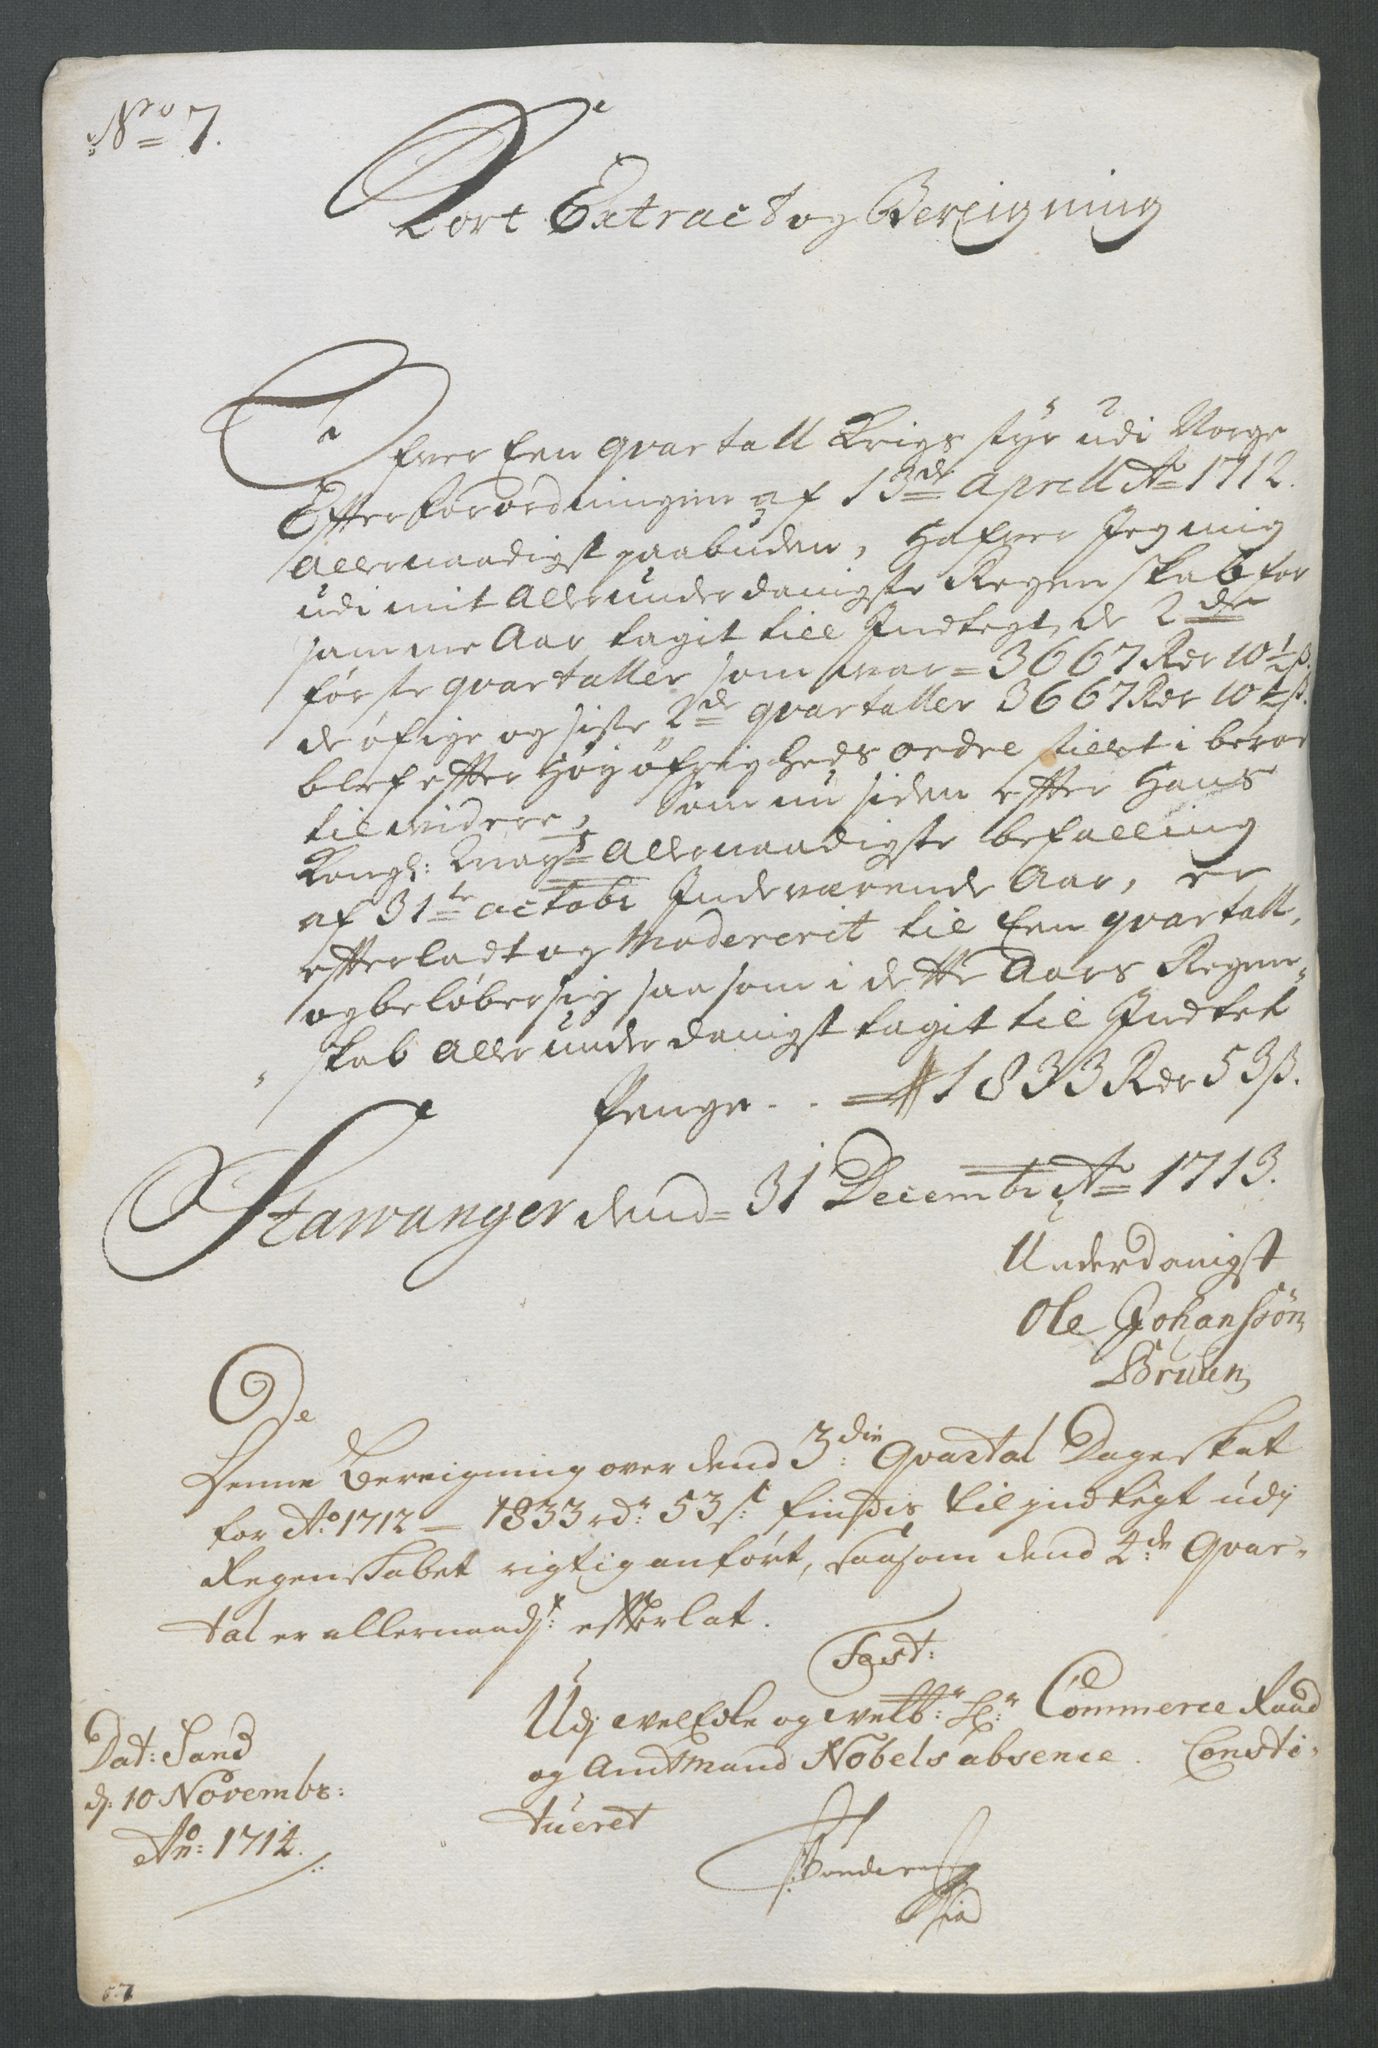 Nro 7.
Kort Extract og Bereigning
Ofver Een qvartall Krigs styr udi Norge
Efter forordningen af 13de Aprill Ao 1712.
Allernaadigst paabuden, Hafver Jeg mig
udi mit Allerunderdanigste Regenskab for
samme Aar tagit till Indtegt, de 2de
første qvartaller som war = 3667 Rdr 10½ s.
de øfrige og siste 2de qvartaller 3667 Rdr 10½ s.
blef efter Høyøfrigheds ordre stillet i beroe
til widere, Som nu siden efter Hans
Kongl: Mayts Allernaadigste befalling
af 31te octobr Indeværende Aar, er
efterladt og Modererit til Een qvartall,
og beløber sig saasom i dette Aars Regen-
skab Allerunderdanigst tagit til Indtek
Penge . . = 1833 Rdr 53 s.
Stawanger dend = 31 Decembr Ao 1713.
Underdanigst
Ole Johanssøn
Bruun
Denne Bereigning over dend 3die Qvartal Dageskat
for Ao 1712 — 1833 rdr 53 s: findis til indtegt udj
Regenskabet rigtig anført, saasom dend 4de Qvar-
tal er allernaadst: efterlat.
Test:
Udj welEdle og welb: Hr: Commerce Raad
og Amtmand Nobels absence. Consti-
tueret
Dat: Sand
d. 10 Novembr:
Ao: 1714.
67